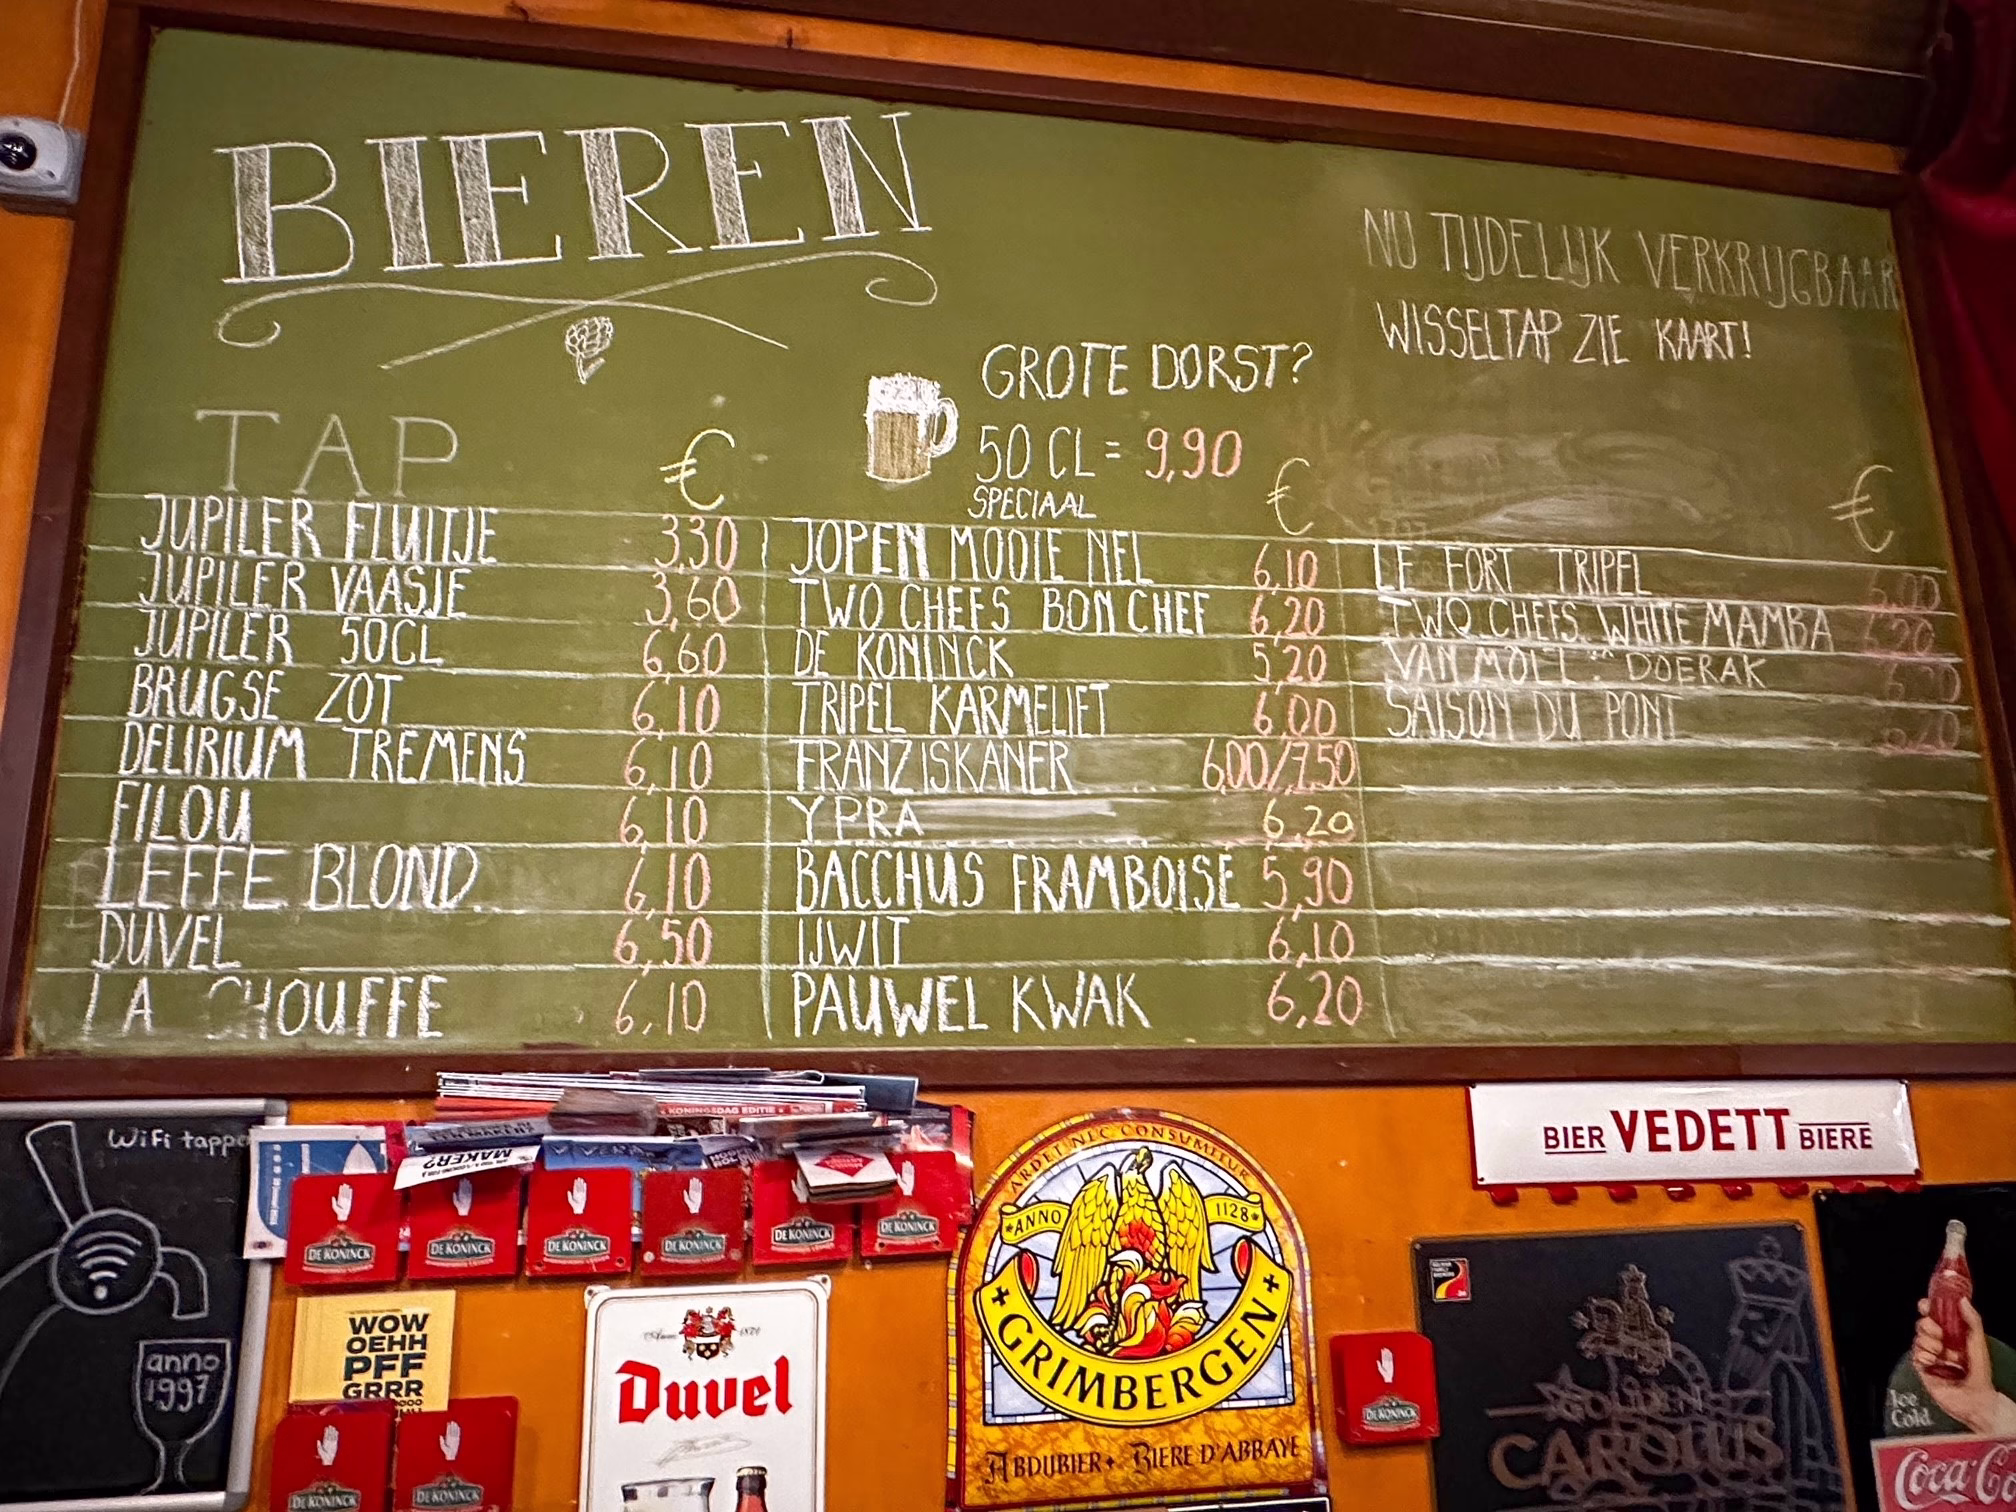 BIEREN
NU TIJDELIJK VERKRIJGBAAR
WISSELTAP ZIE KAART!
GROTE DORST?
50 CL = 9,90
SPECIAAL
TAP €
JUPILER FLUITJE 3,30
JUPILER VAASJE 3,60
JUPILER 50CL 6,60
BRUGSE ZOT 6,10
DELIRIUM TREMENS 6,10
FILOU 6,10
LEFFE BLOND 6,10
DUVEL 6,50
LA CHOUFFE 6,10
€
JOPEN MOOIE NEL 6,10
TWO CHEFS BON CHEF 6,20
DE KONINCK 5,20
TRIPEL KARMELIET 6,00
FRANZISKANER 6,00/7,50
YPRA 6,20
BACCHUS FRAMBOISE 5,90
IJWIT 6,10
PAUWEL KWAK 6,20
€
LE FORT TRIPEL 6,00
TWO CHEFS WHITE MAMBA 6,20
VAN MOLL DOERAK
SAISON DU PONT
WiFi tapper
anno
1997
KONINGSDAG EDITIE
MAKER?
DE KONINCK
DE KONINCK
DE KONINCK
DE KONINCK
DE KONINCK
DE KONINCK
WOW
OEHH
PFF
GRRR
DE KONINCK
DE KONINCK
Anno 1871
Duvel
ARDET NEC CONSUMITUR
ANNO 1128
GRIMBERGEN
ABDIJBIER • BIERE D'ABBAYE
BIER VEDETT BIERE
DE KONINCK
GOUDEN
CAROLUS
Ice
Cold
Coca-Co